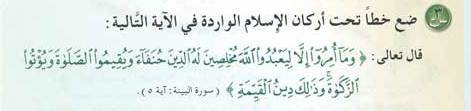 س٣ ضع خطاً تحت أركان الإسلام الواردة في الآية التالية :
قال تعالى : ﴿ وَمَآ أُمِرُوٓا۟ إِلَّا لِيَعْبُدُوا۟ ٱللَّهَ مُخْلِصِينَ لَهُ ٱلدِّينَ حُنَفَآءَ وَيُقِيمُوا۟ ٱلصَّلَوٰةَ وَيُؤْتُوا۟
ٱلزَّكَوٰةَ ۚ وَذَٰلِكَ دِينُ ٱلْقَيِّمَةِ ﴾ ( سورة البينة : آية ٥ ) .